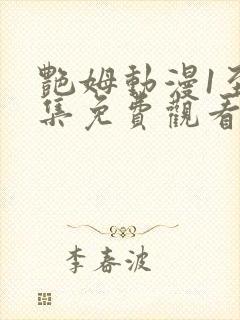 艷姆動漫1至
集免費觀看
李春波